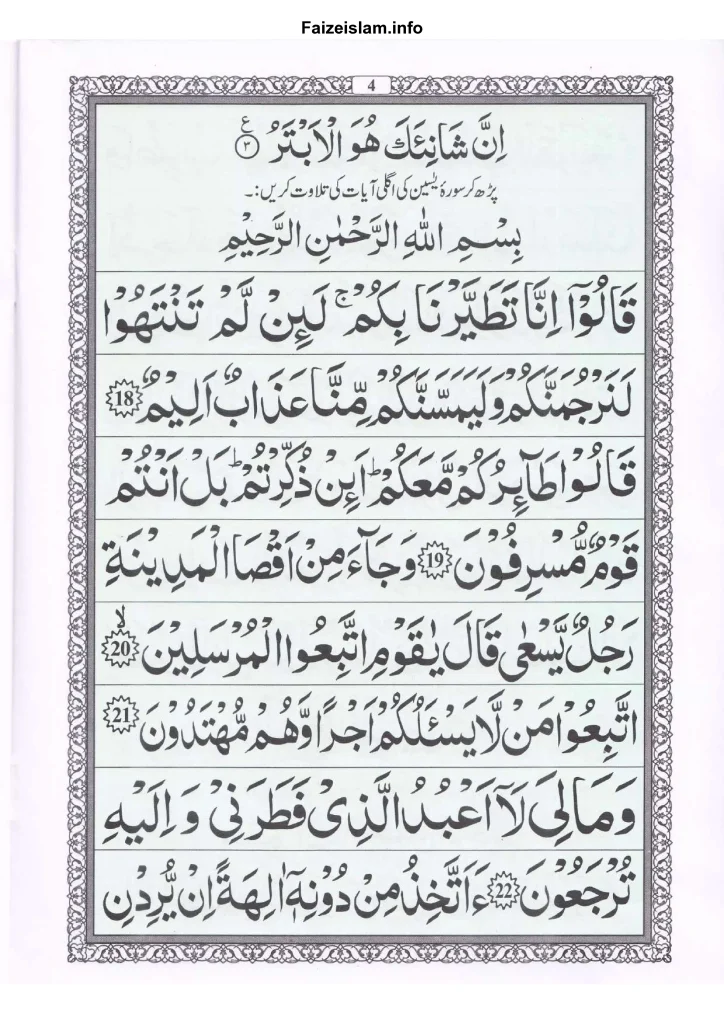 Faizeislam.info
4
اِنَّ شَانِئَكَ هُوَ الْاَبْتَرُ ﴿۳﴾ ع
پڑھ کر سورۂ یٰسین کی اگلی آیات کی تلاوت کریں:۔
بِسْمِ اللّٰهِ الرَّحْمٰنِ الرَّحِيْمِ
قَالُوْۤا اِنَّا تَطَيَّرْنَا بِكُمْ ۚ لَئِنْ لَّمْ تَنْتَهُوْا
لَنَرْجُمَنَّكُمْ وَلَيَمَسَّنَّكُمْ مِّنَّا عَذَابٌ اَلِيْمٌ 18
قَالُوْا طَآئِرُكُمْ مَّعَكُمْ ؕ اَئِنْ ذُكِّرْتُمْ ؕ بَلْ اَنْتُمْ
قَوْمٌ مُّسْرِفُوْنَ 19 وَجَآءَ مِنْ اَقْصَا الْمَدِيْنَةِ
رَجُلٌ يَّسْعٰى قَالَ يٰقَوْمِ اتَّبِعُوا الْمُرْسَلِيْنَ 20 ۙ
اتَّبِعُوْا مَنْ لَّا يَسْئَلُكُمْ اَجْرًا وَّهُمْ مُّهْتَدُوْنَ 21
وَمَا لِىَ لَاۤ اَعْبُدُ الَّذِىْ فَطَرَنِىْ وَ اِلَيْهِ
تُرْجَعُوْنَ 22 ءَاَتَّخِذُ مِنْ دُوْنِهٖۤ اٰلِهَةً اِنْ يُّرِدْنِ